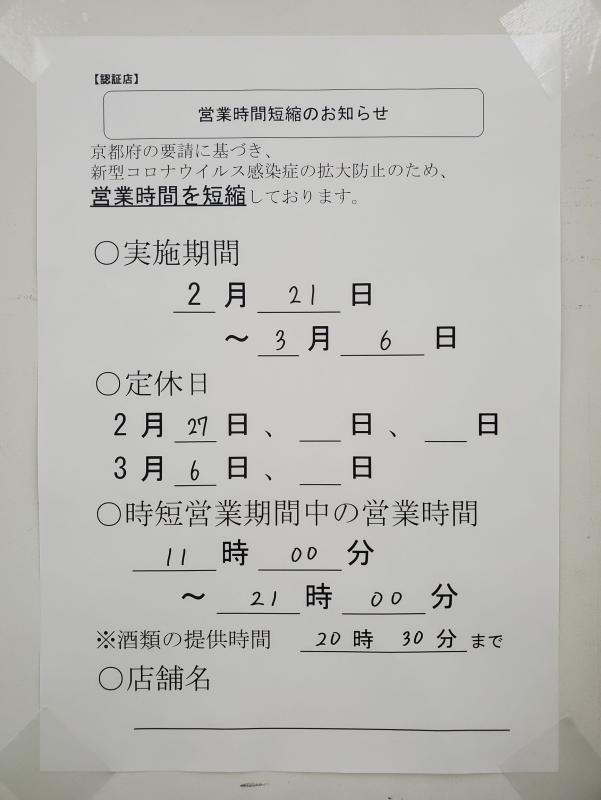 【認証店】
営業時間短縮のお知らせ
京都府の要請に基づき、
新型コロナウイルス感染症の拡大防止のため、
営業時間を短縮しております。
○実施期間
2月 21 日
～ 3 月 6 日
○定休日
2月 27 日、 日、 日
3月 6 日、 日
○時短営業期間中の営業時間
11 時 00 分
～ 21 時 00 分
※酒類の提供時間 20 時 30 分 まで
○店舗名